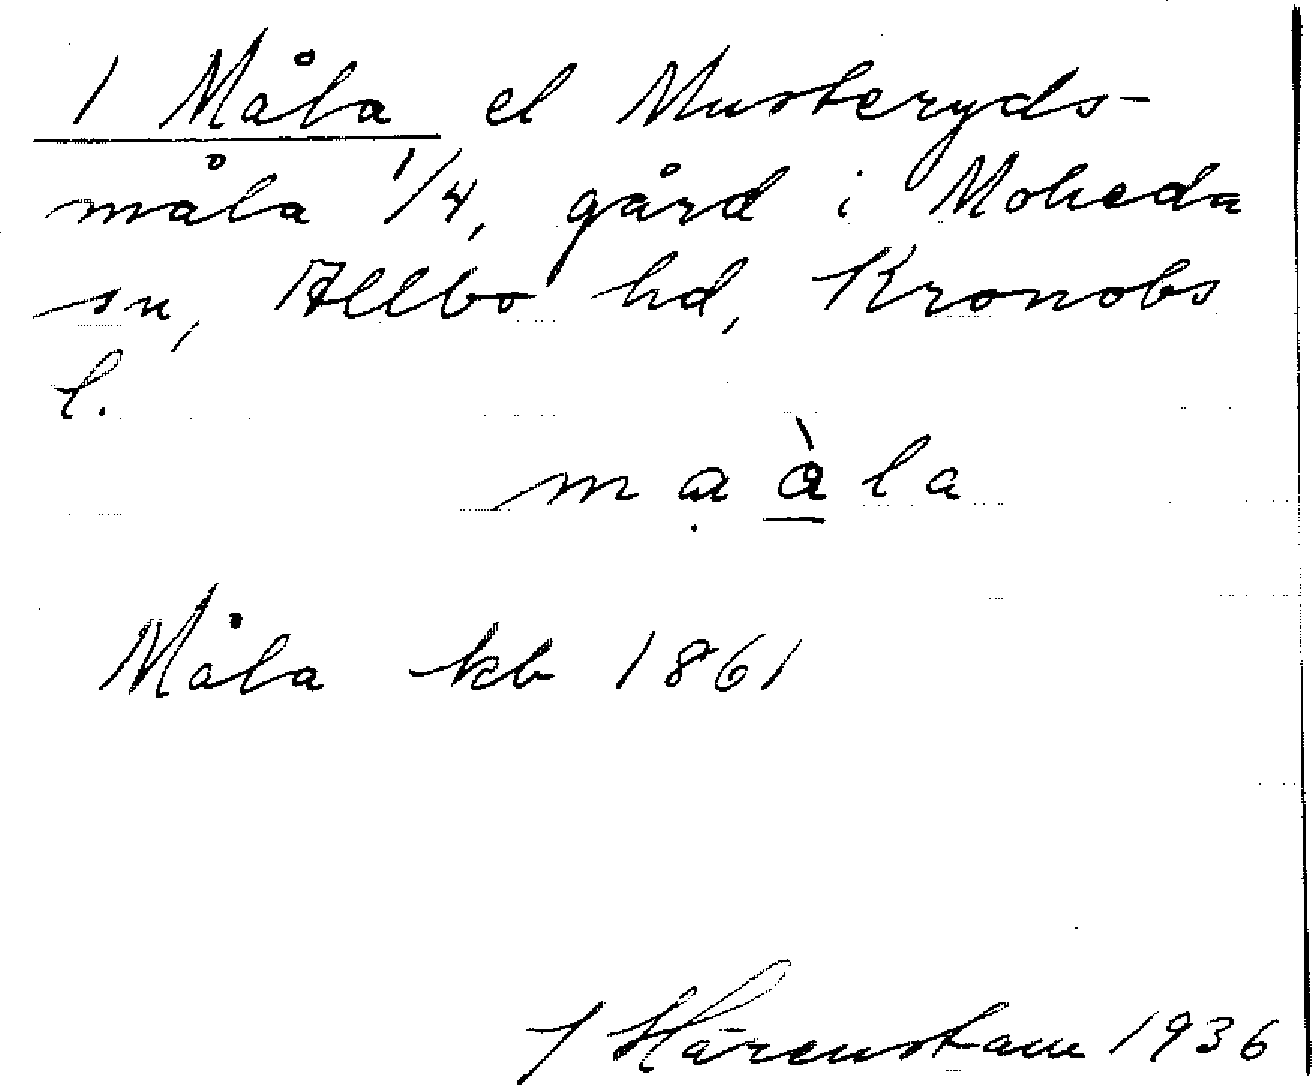 1 Måla el Musteryds-
måla 1/4, gård i Moheda
sn, Allbo hd, Kronobs
l.
mạà̱la
Måla kb 1861
J Härenstam 1936